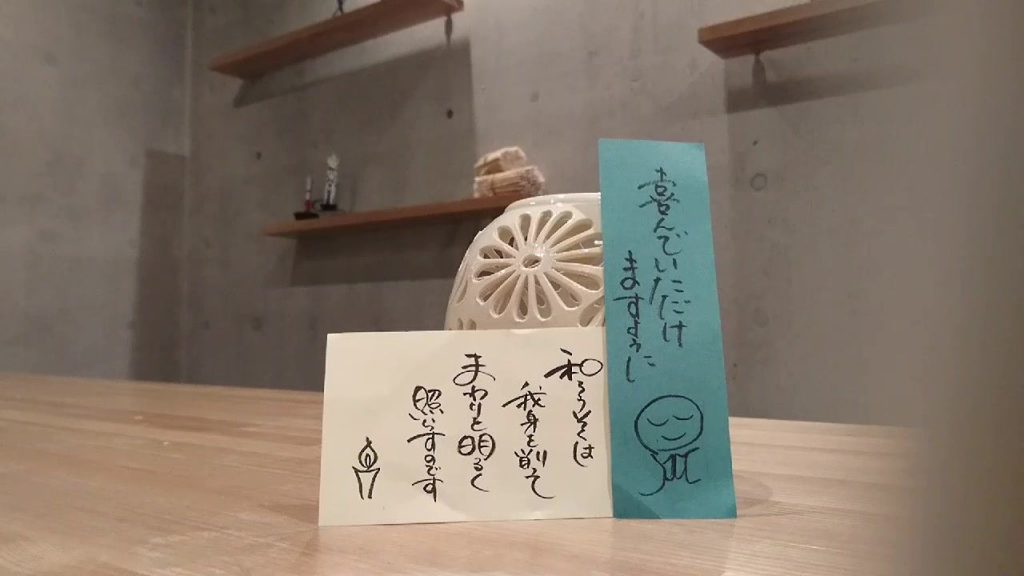 喜んでいただけ
ますように
和ろうそくは
我身を削って
まわりを明るく
照らすのです